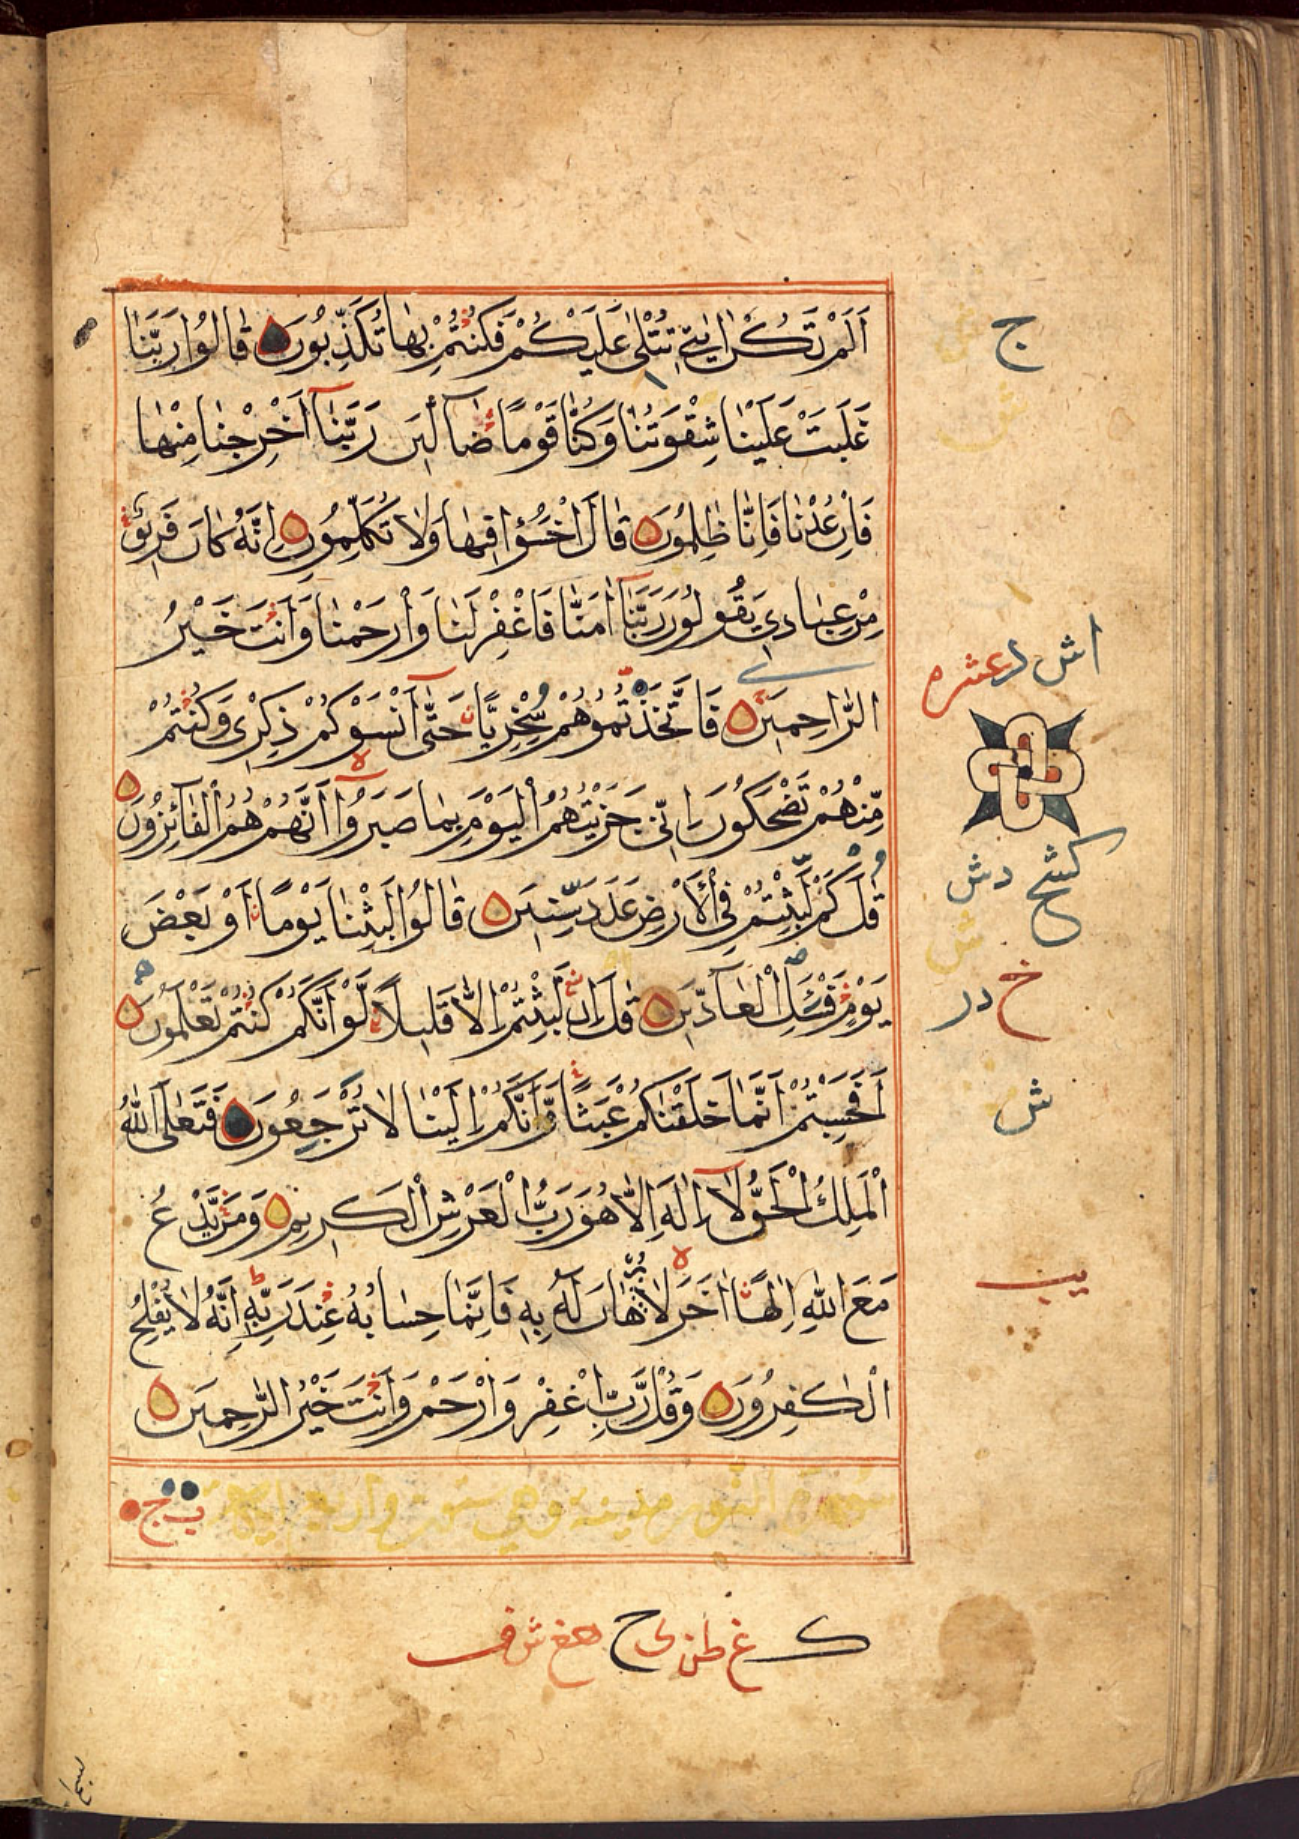 اَلَمْ تَكُنْ اٰيٰتِيْ تُتْلٰى عَلَيْكُمْ فَكُنْتُمْ بِهَا تُكَذِّبُوْنَ قَالُوْا رَبَّنَا
غَلَبَتْ عَلَيْنَا شِقْوَتُنَا وَكُنَّا قَوْمًا ضَآلِّيْنَ رَبَّنَآ اَخْرِجْنَا مِنْهَا
فَاِنْ عُدْنَا فَاِنَّا ظٰلِمُوْنَ قَالَ اخْسَؤُا فِيْهَا وَلَا تُكَلِّمُوْنِ اِنَّهٗ كَانَ فَرِيْقٌ
مِنْ عِبَادِيْ يَقُوْلُوْنَ رَبَّنَآ اٰمَنَّا فَاغْفِرْ لَنَا وَارْحَمْنَا وَاَنْتَ خَيْرُ
الرَّاحِمِيْنَ فَاتَّخَذْتُمُوْهُمْ سِخْرِيًّا حَتّٰٓى اَنْسَوْكُمْ ذِكْرِيْ وَكُنْتُمْ
مِّنْهُمْ تَضْحَكُوْنَ اِنِّيْ جَزَيْتُهُمُ الْيَوْمَ بِمَا صَبَرُوْٓا اَنَّهُمْ هُمُ الْفَآئِزُوْنَ
قٰلَ كَمْ لَبِثْتُمْ فِي الْاَرْضِ عَدَدَ سِنِيْنَ قَالُوْا لَبِثْنَا يَوْمًا اَوْ بَعْضَ
يَوْمٍ فَسْئَلِ الْعَآدِّيْنَ قٰلَ اِنْ لَبِثْتُمْ اِلَّا قَلِيْلًا لَّوْ اَنَّكُمْ كُنْتُمْ تَعْلَمُوْنَ
اَفَحَسِبْتُمْ اَنَّمَا خَلَقْنٰكُمْ عَبَثًا وَّاَنَّكُمْ اِلَيْنَا لَا تُرْجَعُوْنَ فَتَعٰلَى اللّٰهُ
الْمَلِكُ الْحَقُّ لَآ اِلٰهَ اِلَّا هُوَ رَبُّ الْعَرْشِ الْكَرِيْمِ وَمَنْ يَّدْعُ
مَعَ اللّٰهِ اِلٰهًا اٰخَرَ لَا بُرْهَانَ لَهٗ بِهٖ فَاِنَّمَا حِسَابُهٗ عِنْدَ رَبِّهٖ اِنَّهٗ لَا يُفْلِحُ
الْكٰفِرُوْنَ وَقُلْ رَّبِّ اغْفِرْ وَارْحَمْ وَاَنْتَ خَيْرُ الرّٰحِمِيْنَ
سورة النور مدينة وهي ستون واربع
ج
عشره
ش
يب